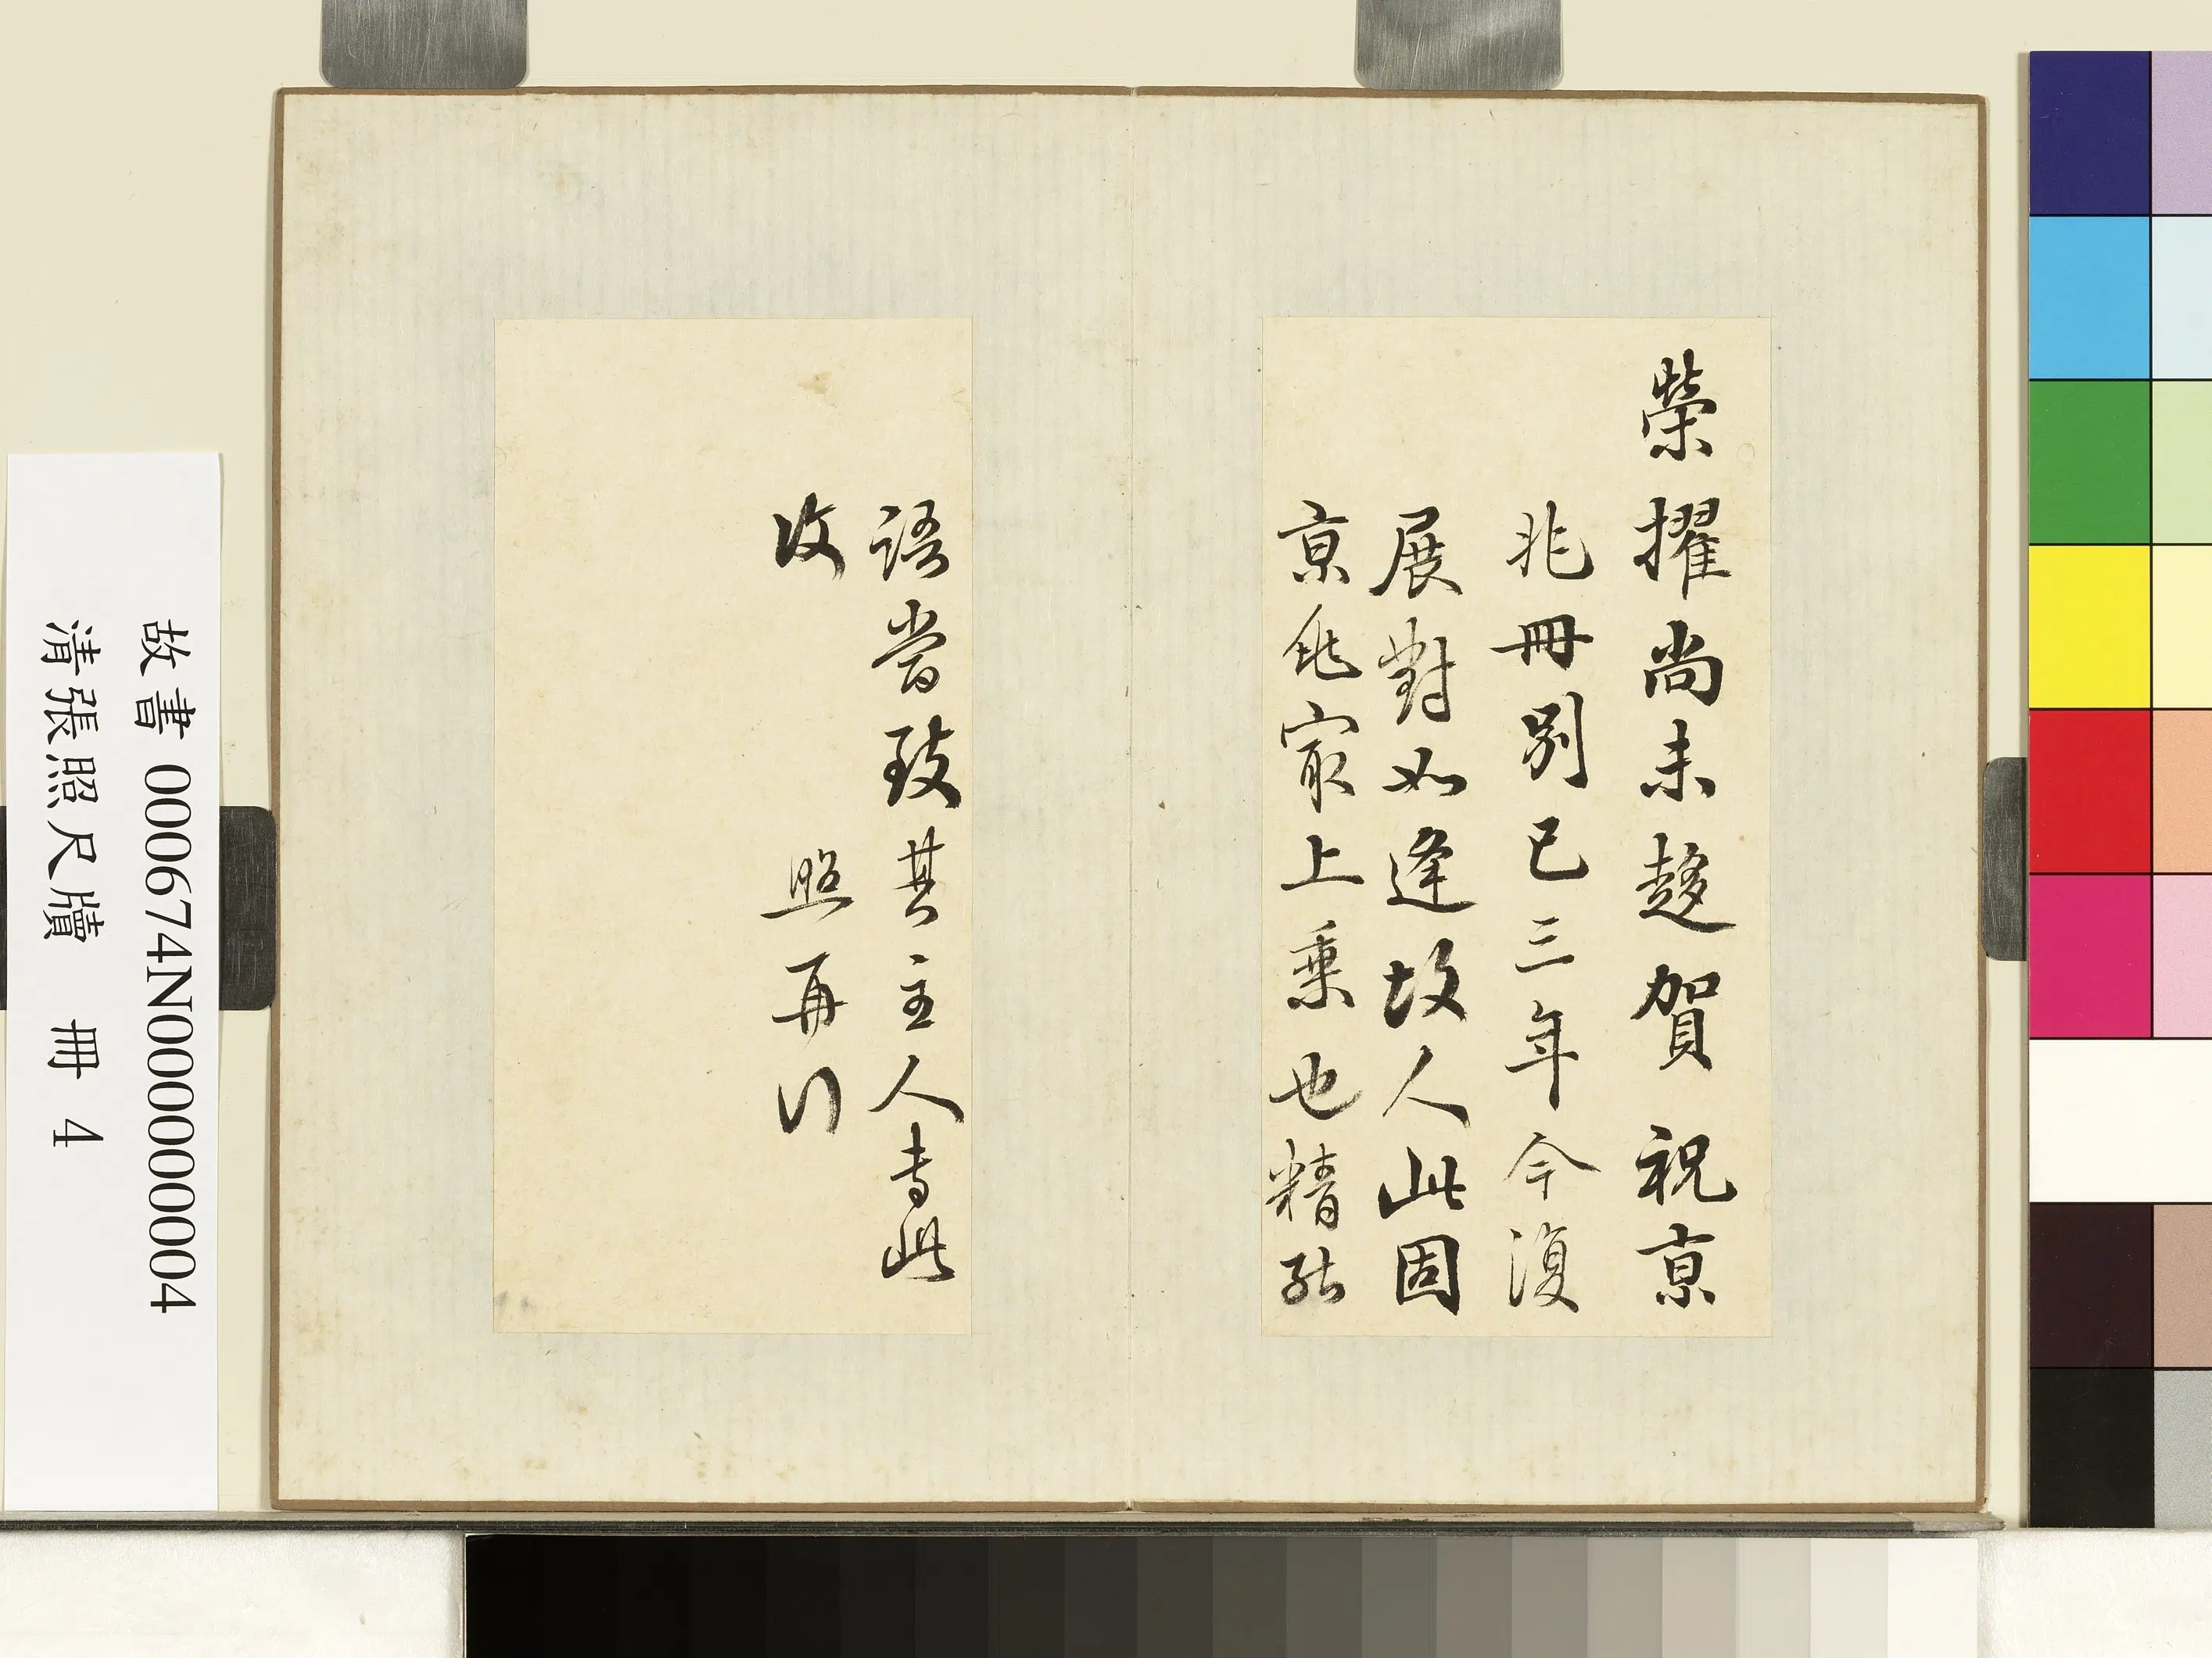 榮擢尚未趨賀祝京
兆冊別已三年今復
展對如逢故人此固
京兆最上乘也精
語當致其主人專此
汶
照再行
故書000674N000000004
清張照尺牘 冊 4